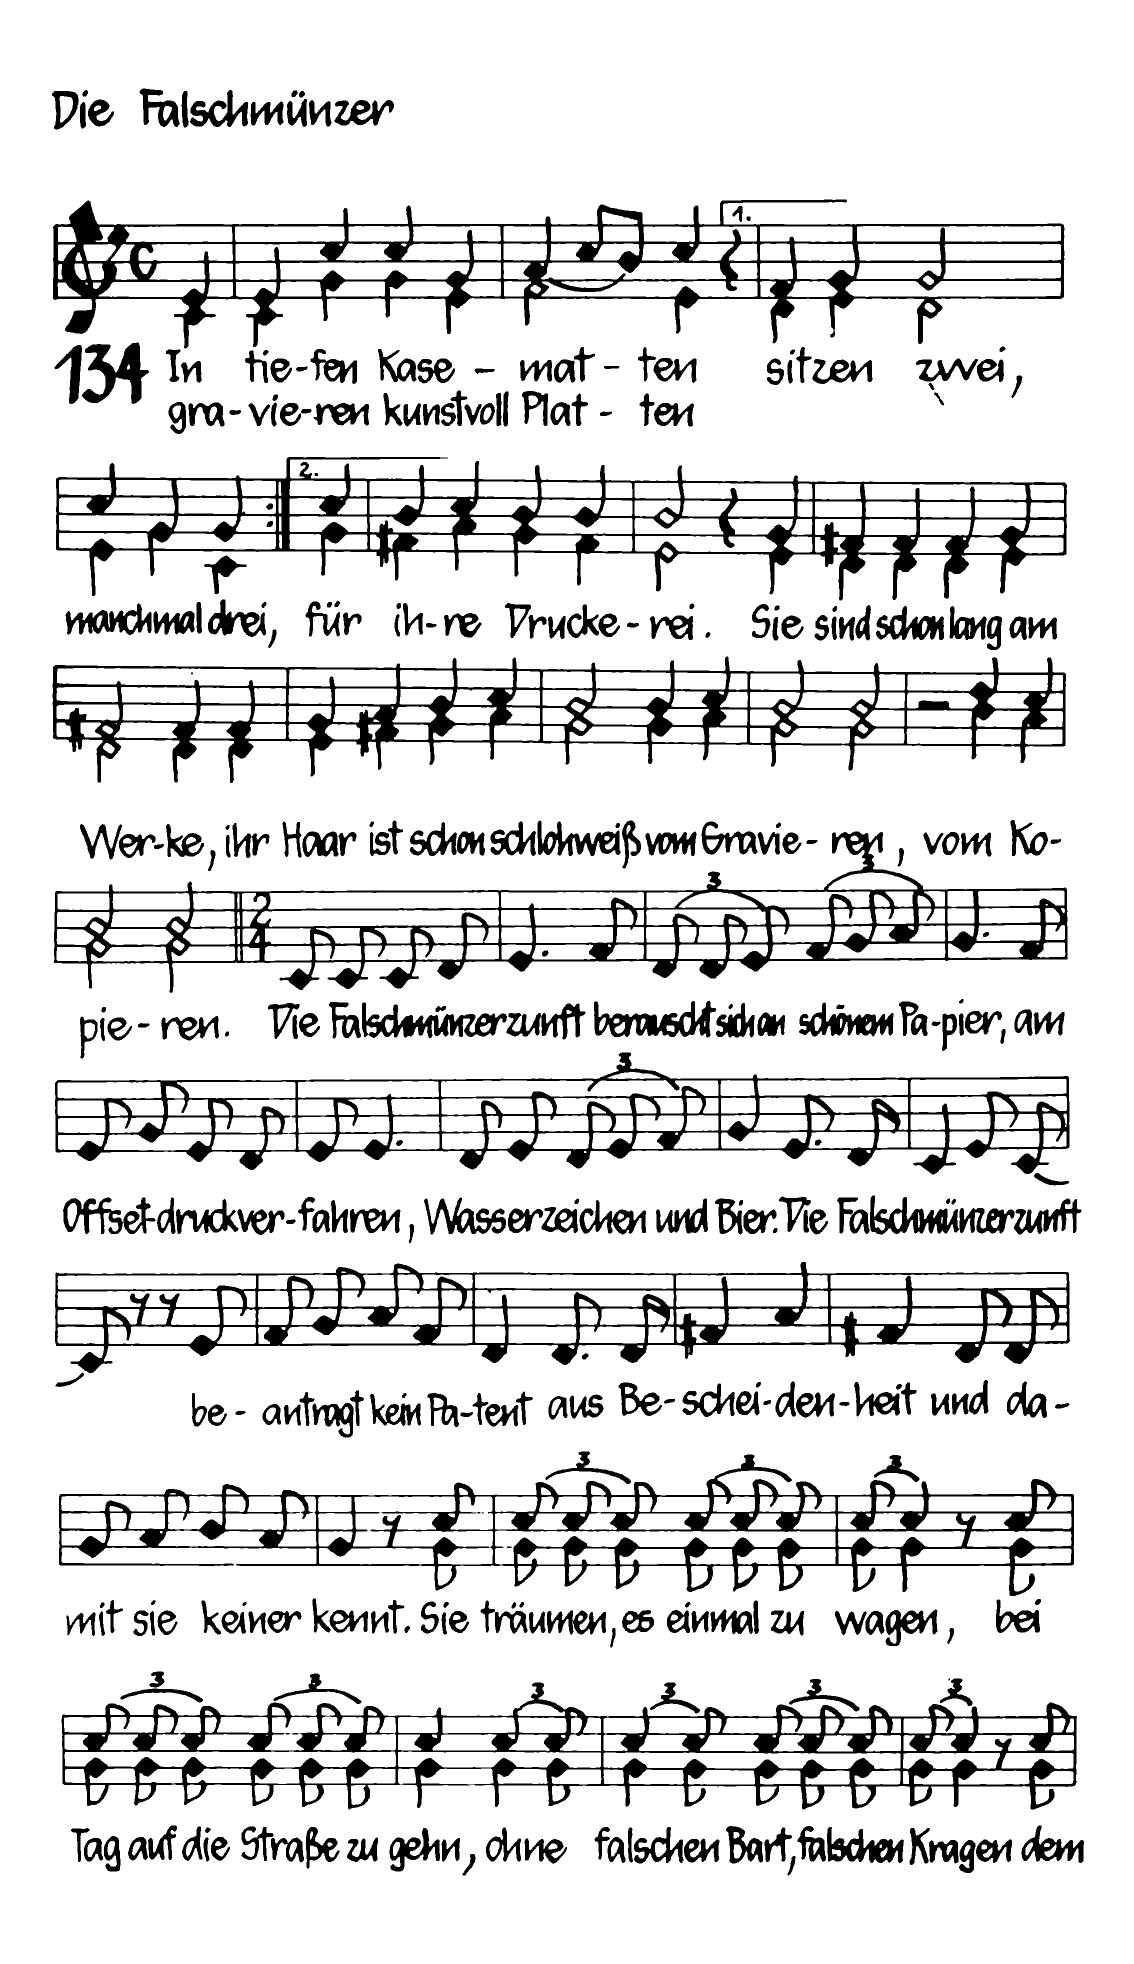 Die Falschmünzer
1.
134 In tie-fen Kase - mat - ten sitzen zwei,
gra-vie-ren kunstvoll Plat - ten
2.
manchmal drei, für ih-re Drucke-rei. Sie sind schon lang am
Wer-ke, ihr Haar ist schon schlohweiß vom Gravie-ren, vom Ko-
3
2
4
3
pie-ren. Die Falschmünzerzunft berauscht sich an schönem Pa-pier, am
3
Offset-druckver-fahren, Wasserzeichen und Bier. Die Falschmünzerzunft
be- antragt kein Pa-tent aus Be-schei-den-heit und da-
3 3 3
mit sie keiner kennt. Sie träumen, es einmal zu wagen, bei
3 3 3 3 3 3
Tag auf die Straße zu gehn, ohne falschen Bart, falschen Kragen dem